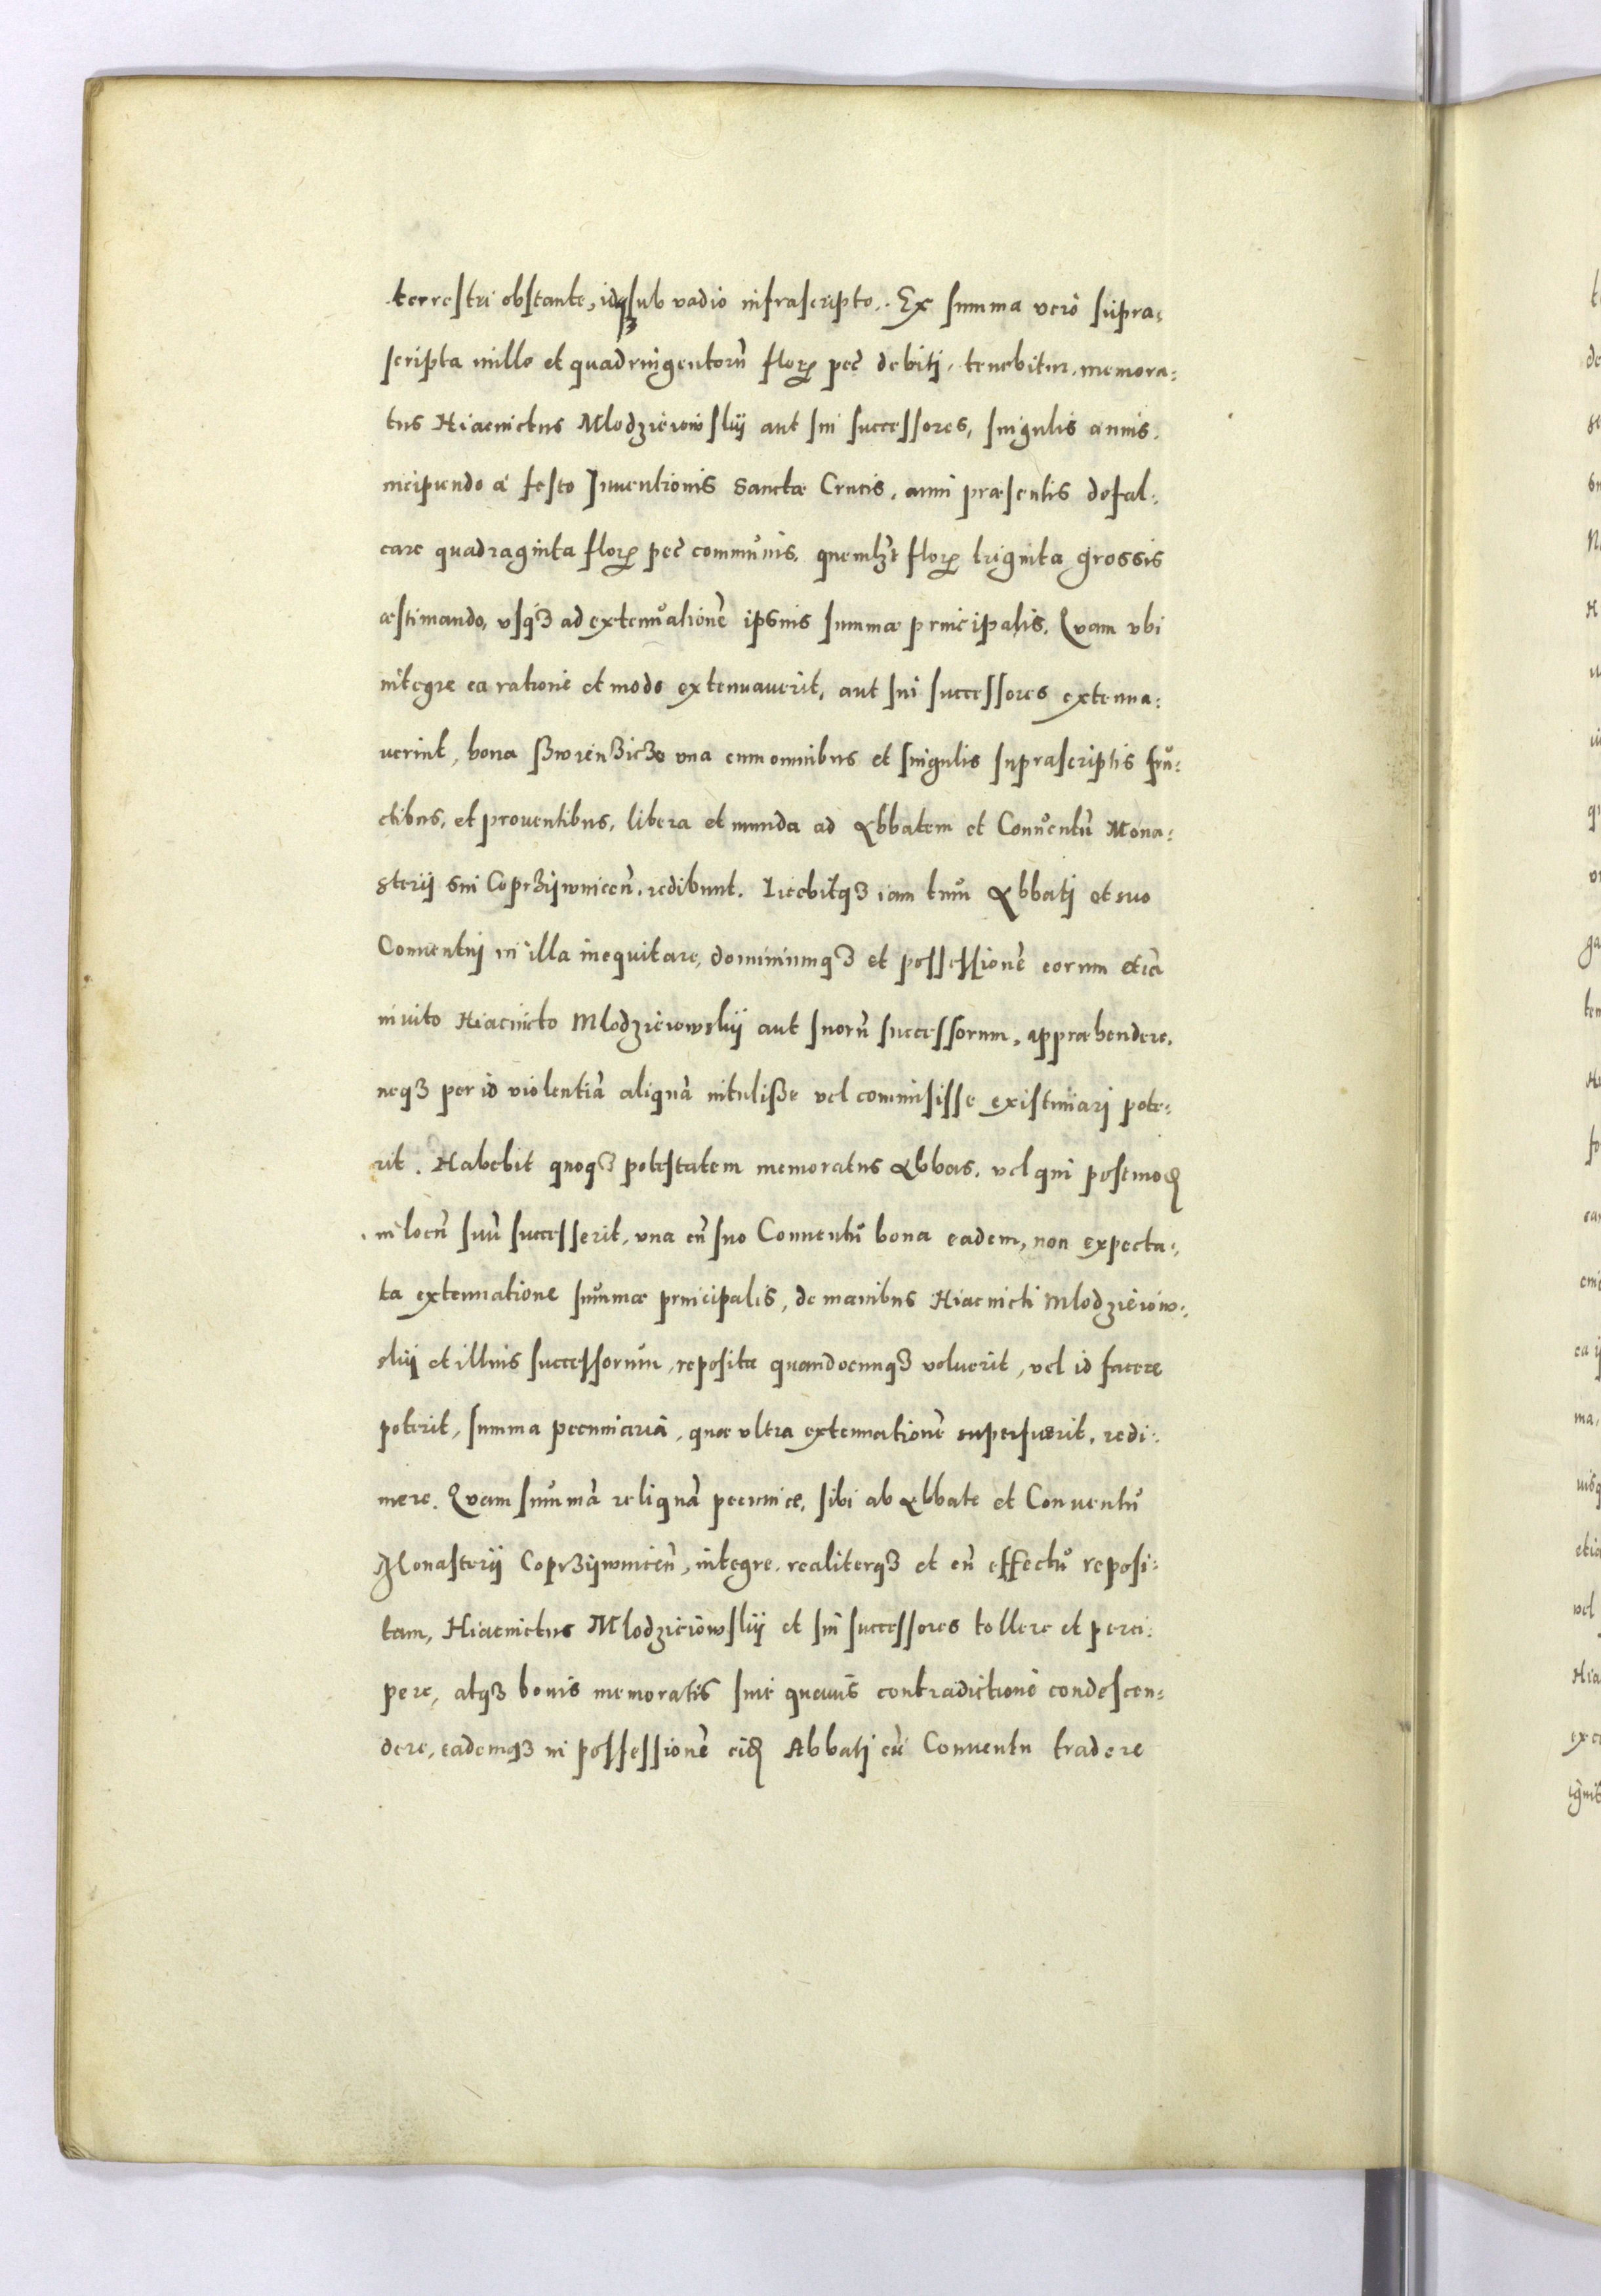 terrestri obstante, idqꝫ sub vadio infrascripto. Ex summa vero supra:
scripta mille et quadringentorū florꝝ pec̄ debiti, tenebitur, memora:
tus Hiacinctus Mlodzieiowskij aut sui successores, singulis annis,
incipiendo à festo Inuentionis Sanctæ Crucis, anni præsentis defal:
care quadraginta florꝝ pec̄ communis, quemlꝫt florꝝ triginta grossis
æstimando, vsqꝫ ad extenuationē ipsius summæ principalis. Quam vbi
integre ea ratione et modo extenuauerit, aut sui successores extenua:
uerint, bona una cum omnibus et singulis suprascriptis fru:
ctibus, et prouentibus, libera et munda ad Abbatem et Conuentū Mona:
sterij sui Coprꝫijwnicen̄. redibunt. Licebitqꝫ iam tum Abbati et suo
Conuentuj in illa inequitare, dominiumqꝫ et possessionē eorum etiā
inuito Hiacincto Mlodzieiowskij aut suorū successorum, appræhendere,
neqꝫ per id violentiā aliquā intulisse vel commisisse existimari pote:
rit. Habebit quoqꝫ potestatem memoratus Abbas, vel qui postmođ
in locū suū successerit, una cū suo Conuentu bona eadem, non expecta:
ta extenuatione summæ principalis, de manibus Hiacincti Mlodzieiow:
skij et illius successorum, reposita quandocunqꝫ voluerit, vel id facere
poterit, summa pecuniaria, quæ vltra extenuationē superfuerit, redi:
mere. Quam summā reliquā pecuniæ, sibi ab Abbate et Conuentu
Monasterij Coprꝫijwnicen̄, integre, realiterqꝫ et cū effectu reposi:
tam, Hiacinctus Mlodzieiowskij et sui successores tollere et perci:
pere, atqꝫ bonis memoratis sine quauis contradictione condescen:
dere, eademqꝫ in possessionē eiđ Abbati cū Conuentu tradere